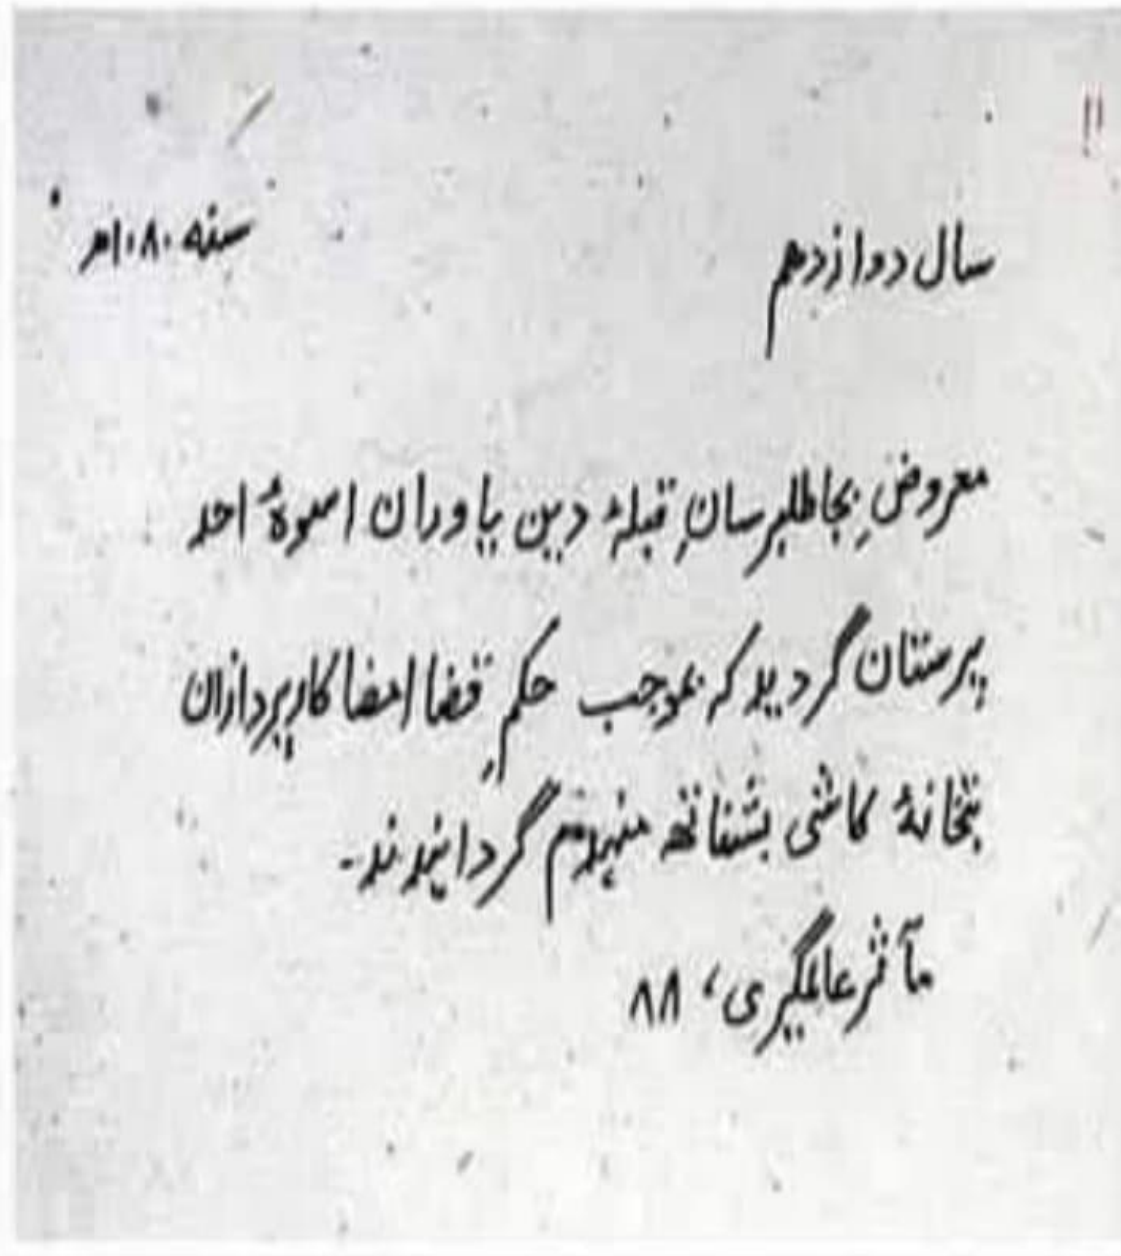 ۱۱
سال دوازدهم سنه ۱۰۸۰ھ
معروضِ بخاطر رسانِ قبلۂ دین یاوران اسوۂ احد
پرستان گردید کہ بموجب حکمِ قضا امضا کارپردازان
بتخانۂ کاشی بشناتھ منہدم گردانیدند۔
مآثر عالمگیری، ۸۸